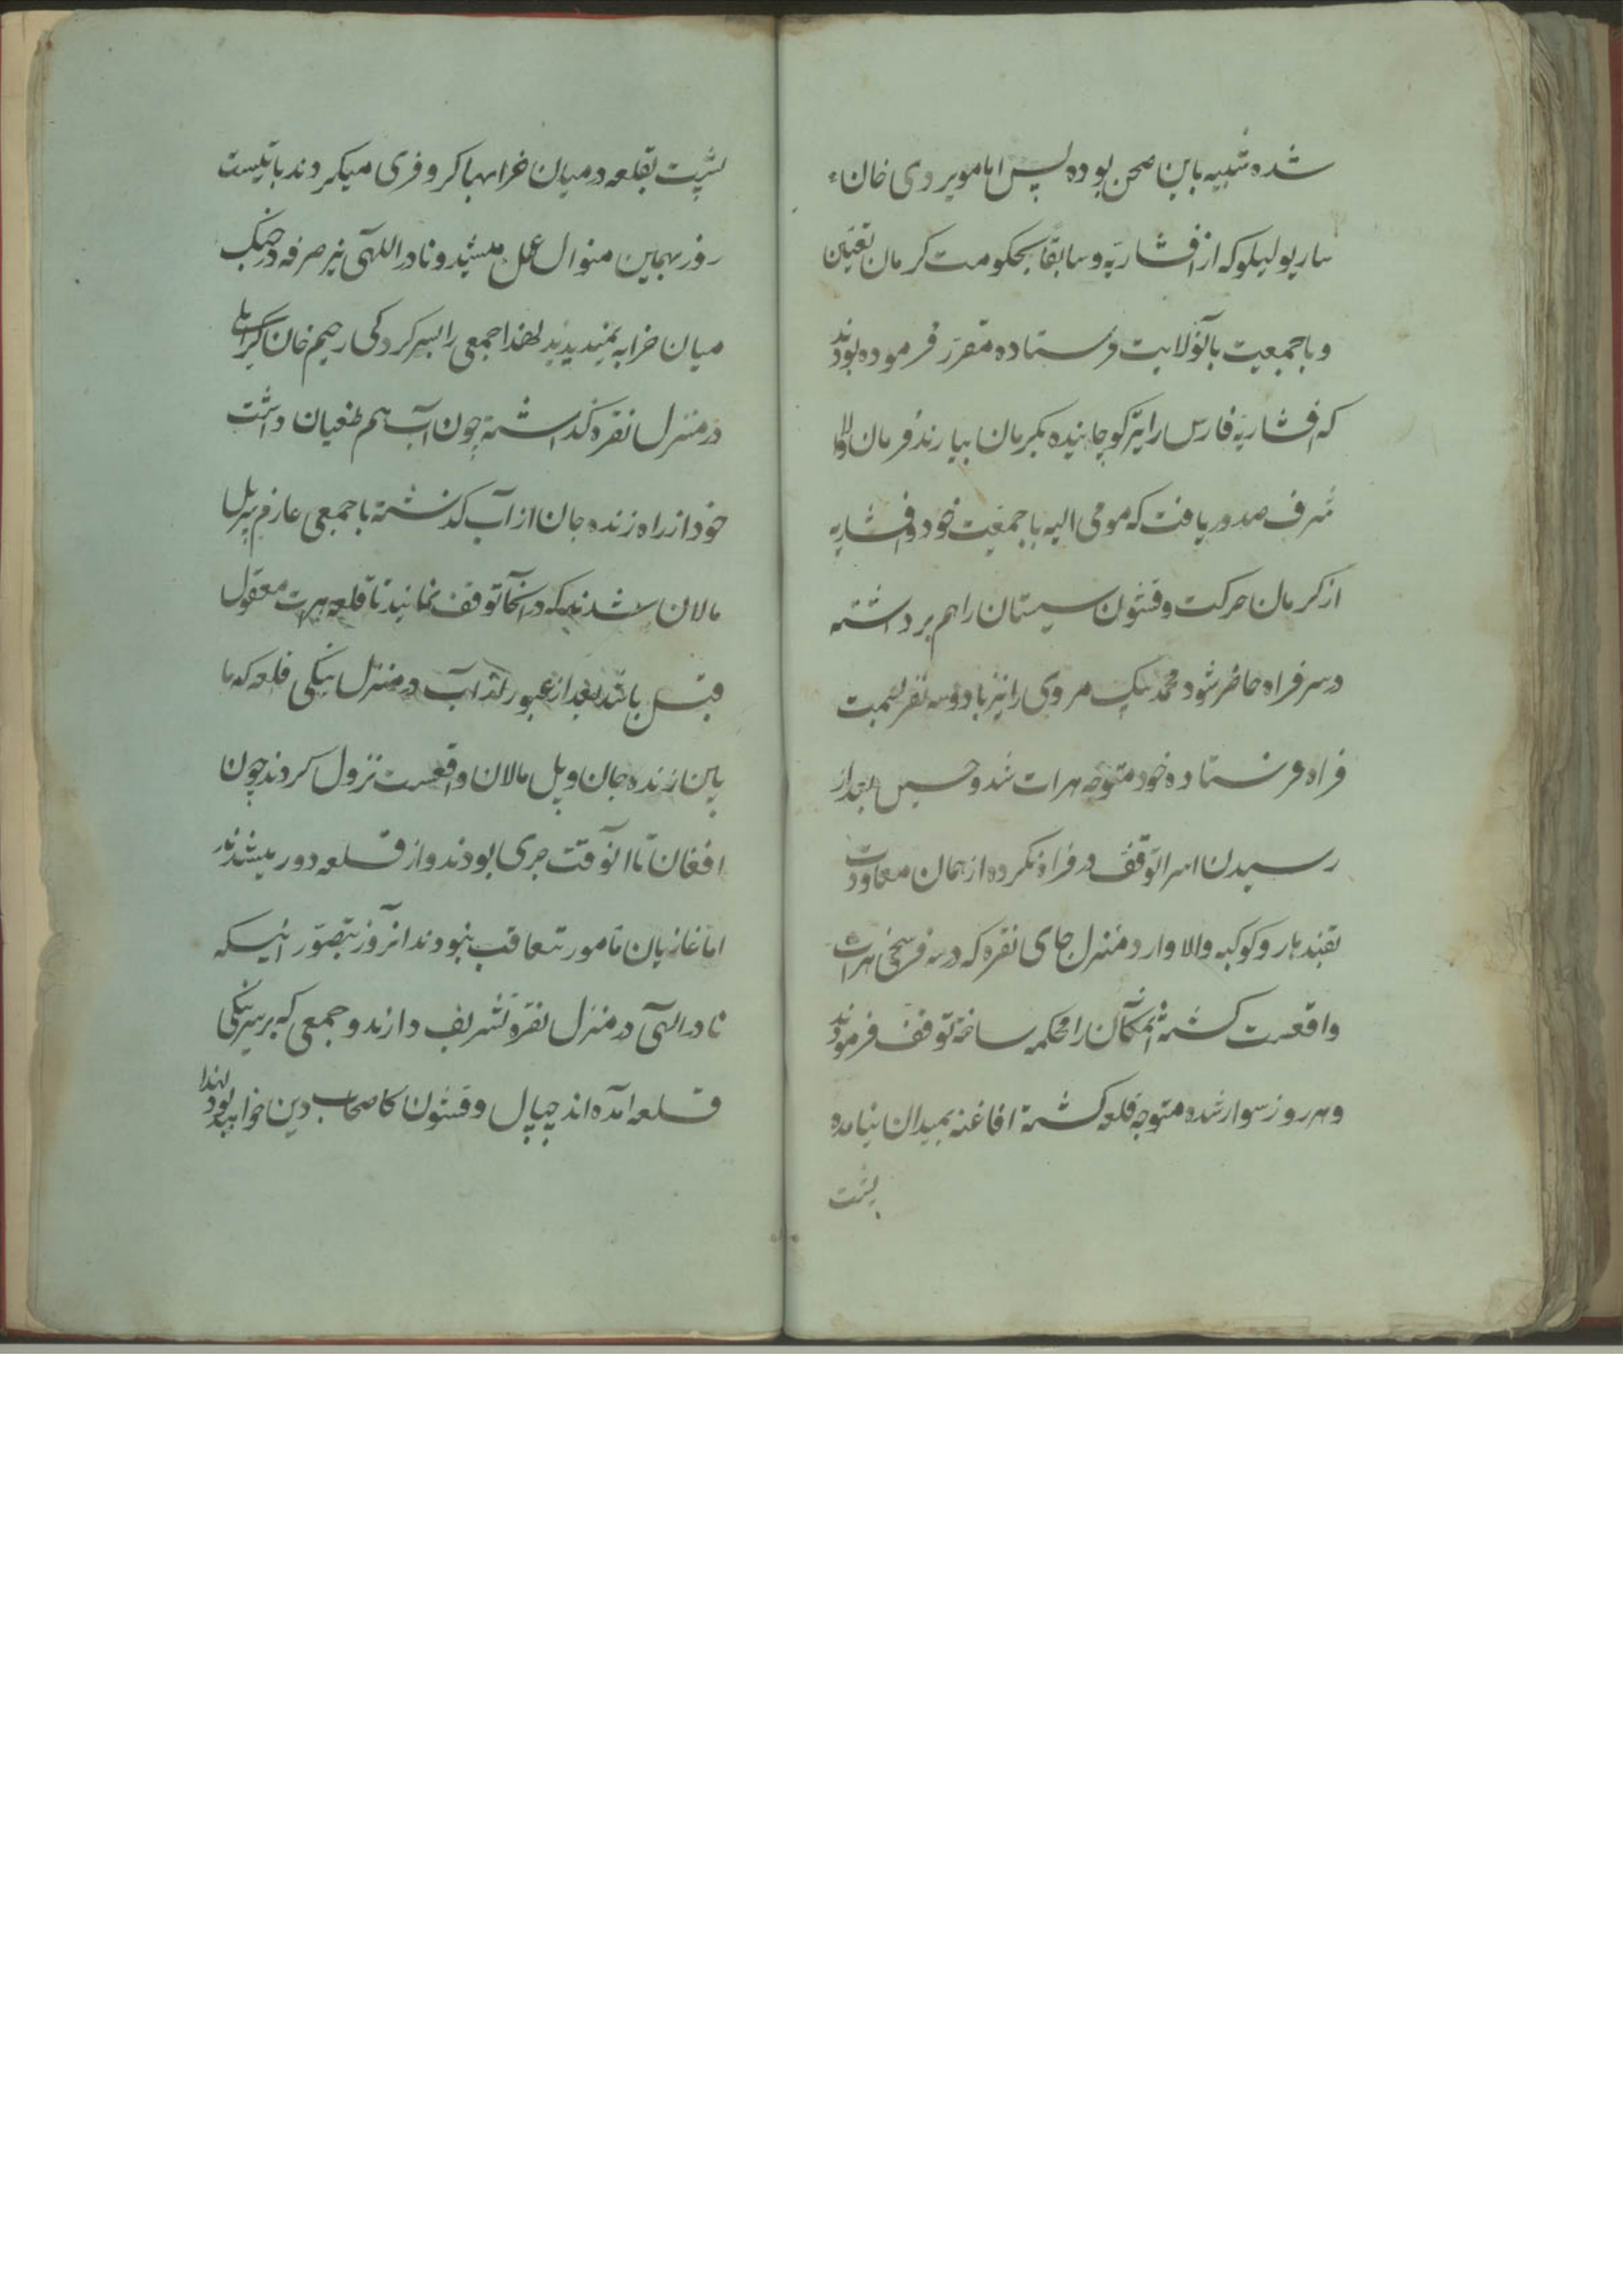 شده شبیه باین صحن بوده پس امامویردی خان
ساریولیلو که از افشاریه و سابقا بحکومت کرمان تعیین
و با جمعیت بآنولایت فرستاده مقرر فرموده بودند
که افشاریه فارس را نیز کوچانیده بکرمان بیارند فرمان والا
شرف صدور یافت که مومی الیه با جمعیت خود و افشاریه
از کرمان حرکت و قشون سیستان را هم برداشته
در سر فراه حاضر شود محمد بیک مروی را نیز با دو سه نفر بسمت
فراه فرستاده خود متوجه هرات شد و حسین بعد از
رسیدن اسرا توقف در فراه نکرده از همان معاودت
بقندهار و کوکبه والا وارد منزل جای نقره که در سه فرسخی هرات
واقعست کشته آنمکان را محکمه ساخته توقف فرمودند
و هر روز سوار شده متوجه قلعه کشته افاغنه بمیدان نیامده
پشت
پشت بقلعه در میان خرابها کر و فری میکردند تا بیست
روز بهمین منوال عمل میشد و نادر اللهی نیز صرفه در جنک
میان خرابه نمیدیدند لهذا جمعی را بسرکردکی رحیم خان کرایلی
در منزل نقره کذاشته چون آب هم طغیان داشت
خود از راه زنده جان از آب کذشته با جمعی عازم سر پل
مالان شدند که در آنجا توقف نمایند تا قلعه هرات معقول
قبل باشد بعد از عبور از آب در منزل نیکی قلعه که ما
بین زنده جان و پل مالان واقعست نزول کردند چون
افغان تا آنوقت جری بودند و از قلعه دور میشدند
اما غازیان مامور تعاقب نبودند آنروز بتصور اینکه
نادر الهی در منزل نقره تشریف دارند و جمعی که بر سر نیکی
قلعه آمده اند چپاپل و قشون کاصحاب دین خواهد بود لهذا